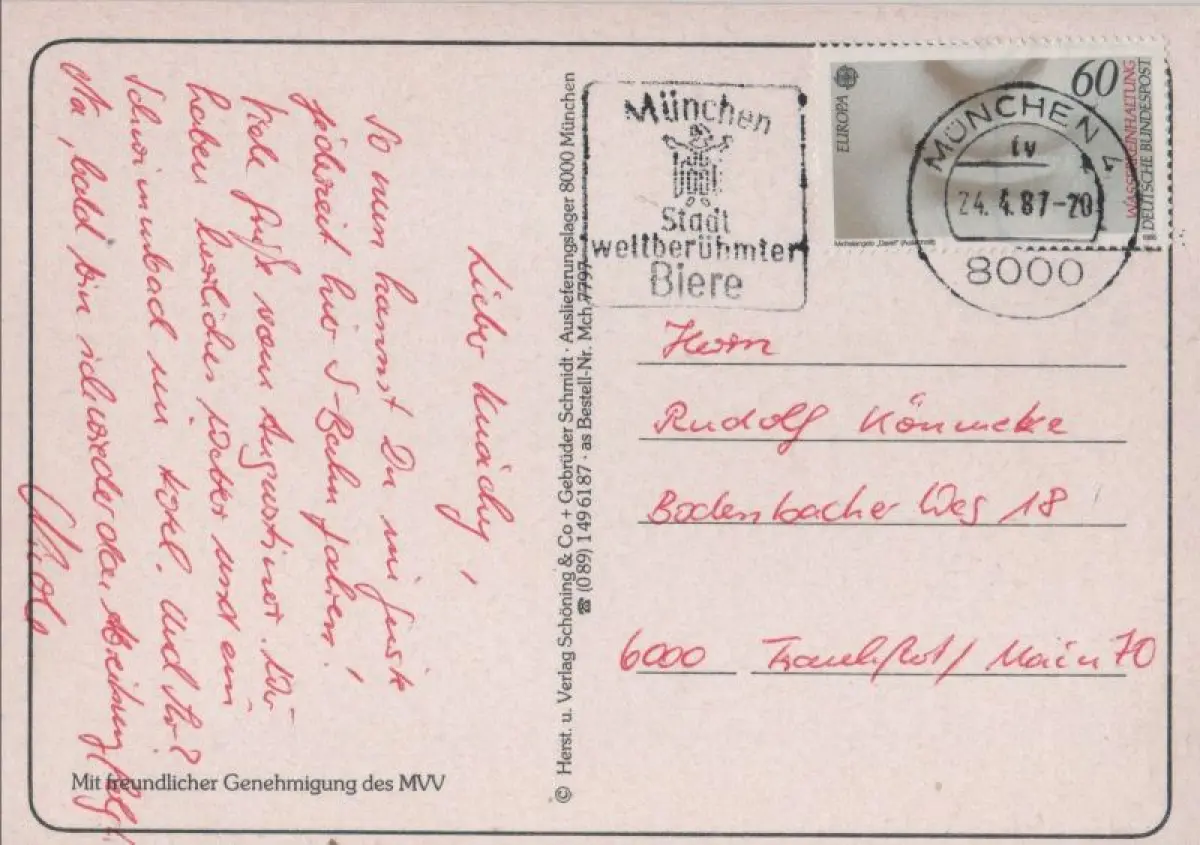 Lieber Knuddy,
So nun kannst Du im Geiste
jederzeit hier S-Bahn fahren!
Viele Grüße vom Augustiner. Wir
haben herrliches Wetter und ein
Schwimmbad im Hotel. Und Ihr?
Na, bald bin ich wieder da,
Mit freundlicher Genehmigung des MVV
© Herst. u. Verlag Schöning & Co + Gebrüder Schmidt · Auslieferungslager 8000 München
☎ (0 89) 1 49 61 87 · as Bestell-Nr. Mch 7797
München
Stadt
weltberühmter
Biere
EUROPA
60
WASSERREINHALTUNG
DEUTSCHE BUNDESPOST
Michelangelo „David“
MÜNCHEN 4
tv
24.4.87-20
8000
Herrn
Rudolf Könneke
Bodenbacher Weg 18
6000 Frankfurt/Main 70